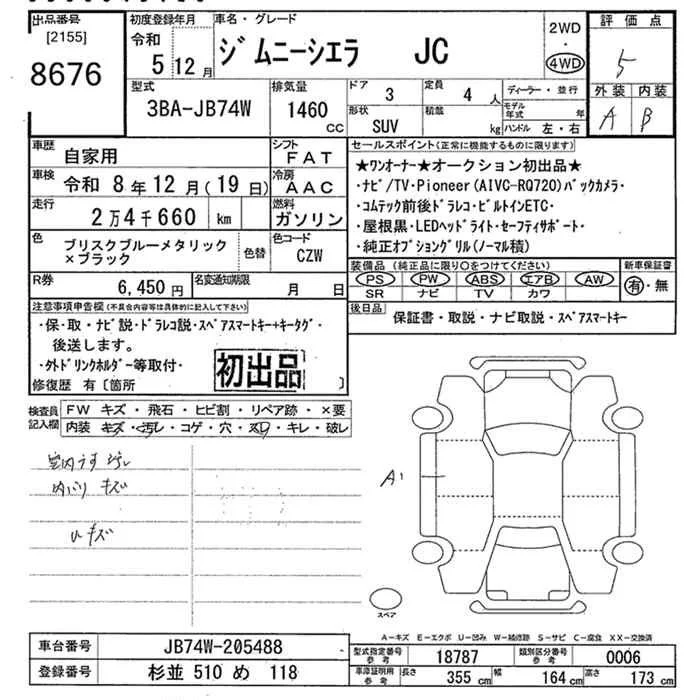 出品番号
[2155]
8676
初度登録年月
令和
5 12 月
車名・グレード
ジムニーシエラ JC
2WD
・
4WD
評価点
5
外装 内装
A B
型式
3BA-JB74W
排気量
1460
CC
ドア
3
定員
4 人
形状
SUV
積載
kg
ディーラー・並行
モデル年式 年
ハンドル 左・右
車歴
自家用
シフト
FAT
車検
令和 8年12月(19日)
冷房
AAC
走行
2万4千660 km
燃料
ガソリン
色
ブリスクブルーメタリック
×ブラック
色替
色コード
CZW
R券
6,450 円
名変通知期限
月 日
セールスポイント(正常に機能するものに限ります)
★ワンオーナー★オークション初出品★
・ナビ/TV・Pioneer(AIVC-RQ720)バックカメラ・
・コムテック前後ドラレコ・ビルトインETC・
・屋根黒・LEDヘッドライト・セーフティサポート・
・純正オプショングリル(ノーマル積)
装備品 (純正品に限り○をつけてください)
PS PW ABS エアB AW
SR ナビ TV カワ
新車保証書
有・無
後日品
保証書・取説・ナビ取説・スペアスマートキー
注意事項申告欄(不具合内容等は具体的に記入して下さい)
・保・取・ナビ説・ドラレコ説・スペアスマートキー+キータグ・
後送します。
・外ドリンクホルダー等取付・
初出品
修復歴 有〔箇所 〕
検査員
記入欄
FW キズ・飛石・ヒビ割・リペア跡・×要
内装 キズ・汚レ・コゲ・穴・スレ・キレ・破レ
室内うす汚レ
内バリ キズ
Uキズ
A1
スペア
A-キズ E-エクボ U-凹み W-補修跡 S-サビ C-腐食 XX-交換済
車台番号
JB74W-205488
登録番号
杉並 510 め 118
型式指定番号
参考
18787
類別区分番号
参考
0006
車庫証明用
参考
長さ 355 cm
幅 164 cm
高さ 173 cm